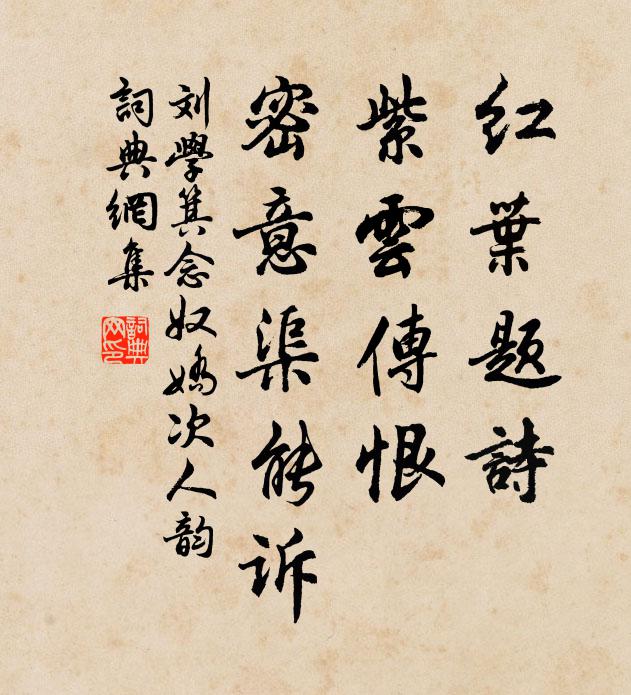 红葉题詩
紫雲傳恨
密意渠能訴
刘學箕念奴嬌次人韵
詞典網集
詞典網印